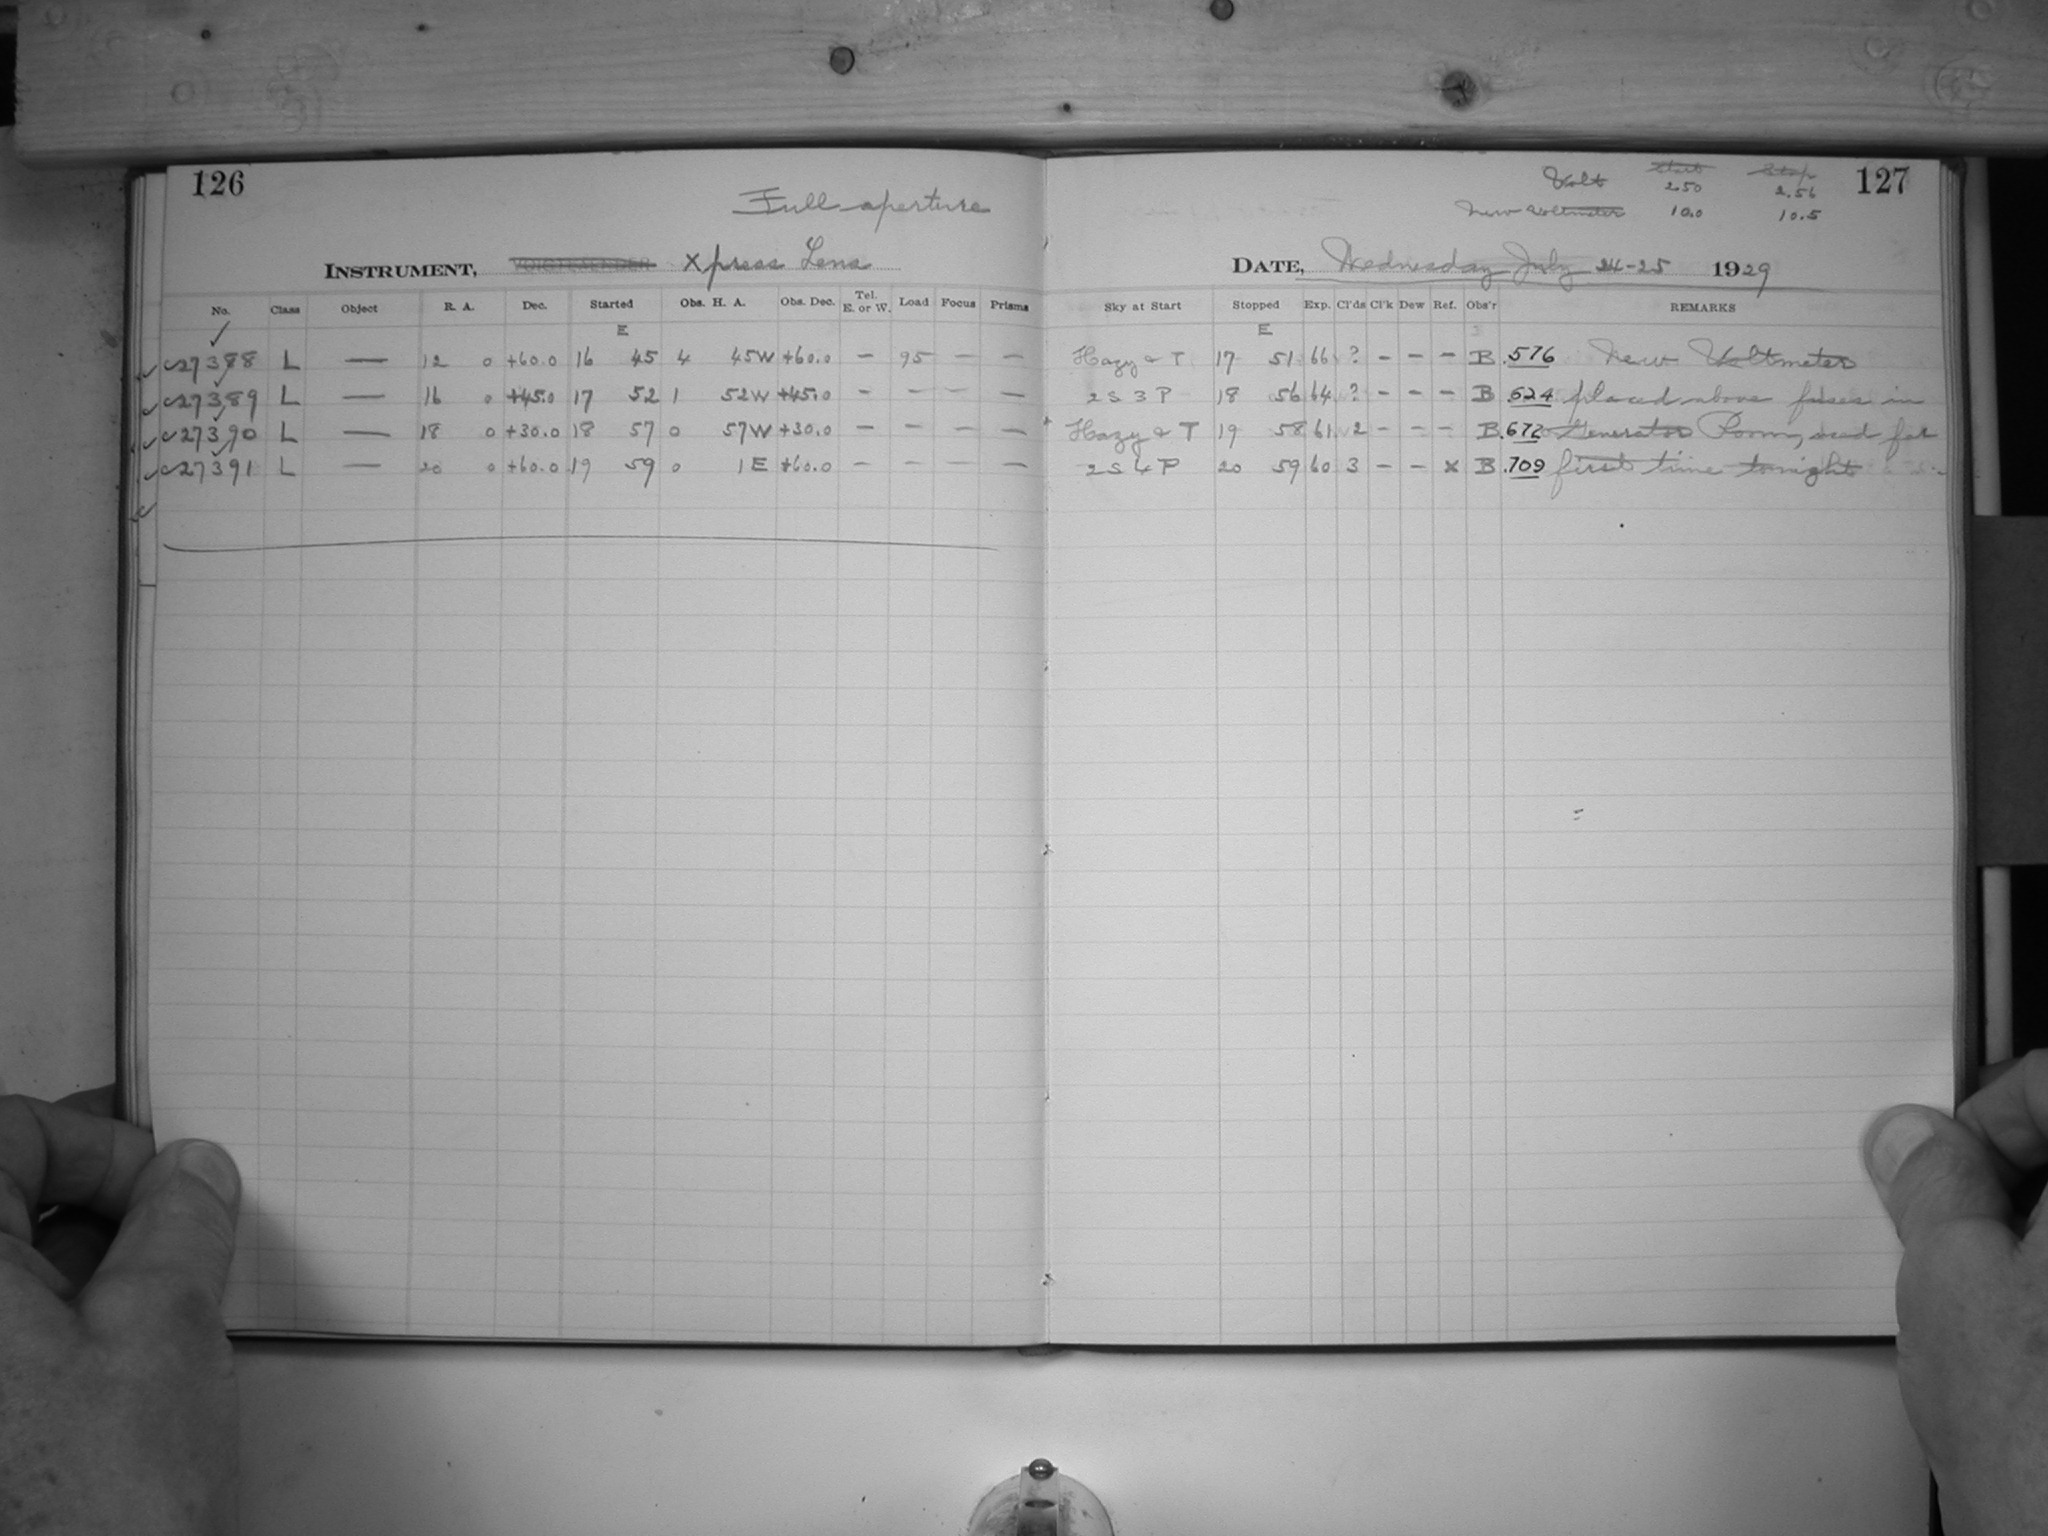 126
Full aperture
INSTRUMENT, VOIGTLAENDER Xpress Lens
No. Class Object R. A. Dec. Started Obs. H. A. Obs. Dec. Tel. E. or W. Load Focus Prisms
E
27388 L — 12 0 +60.0 16 45 4 45W +60.0 — 95 — —
27389 L — 16 0 +45.0 17 52 1 52W +45.0 — — — —
27390 L — 18 0 +30.0 18 57 0 57W +30.0 — — — —
27391 L — 20 0 +60.0 19 59 0 1E +60.0 — — —
Start Stop 127
Volt 2.50 2.56
New Voltmeter 10.0 10.5
DATE, Wednesday July 24-25 1929
Sky at Start Stopped Exp. Cl'ds Cl'k Dew Ref. Obs'r REMARKS
E
Hazy & T 17 51 66 ? — — — B .576 New Voltmeter
2 S 3 P 18 56 64 ? — — — B .624 placed above fuses in
Hazy & T 19 58 61 2 — — — B .672 Generator Room, used for
2 S 4 P 20 59 60 3 — — x B .709 first time tonight